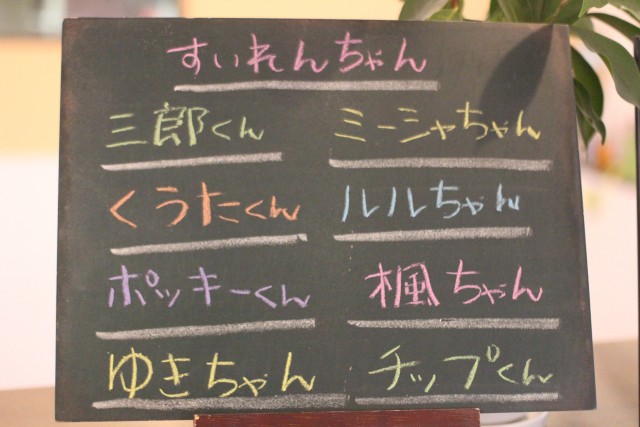 すいれんちゃん
三郎くん ミーシャちゃん
くうたくん ルルちゃん
ポッキーくん 楓ちゃん
ゆきちゃん チップくん